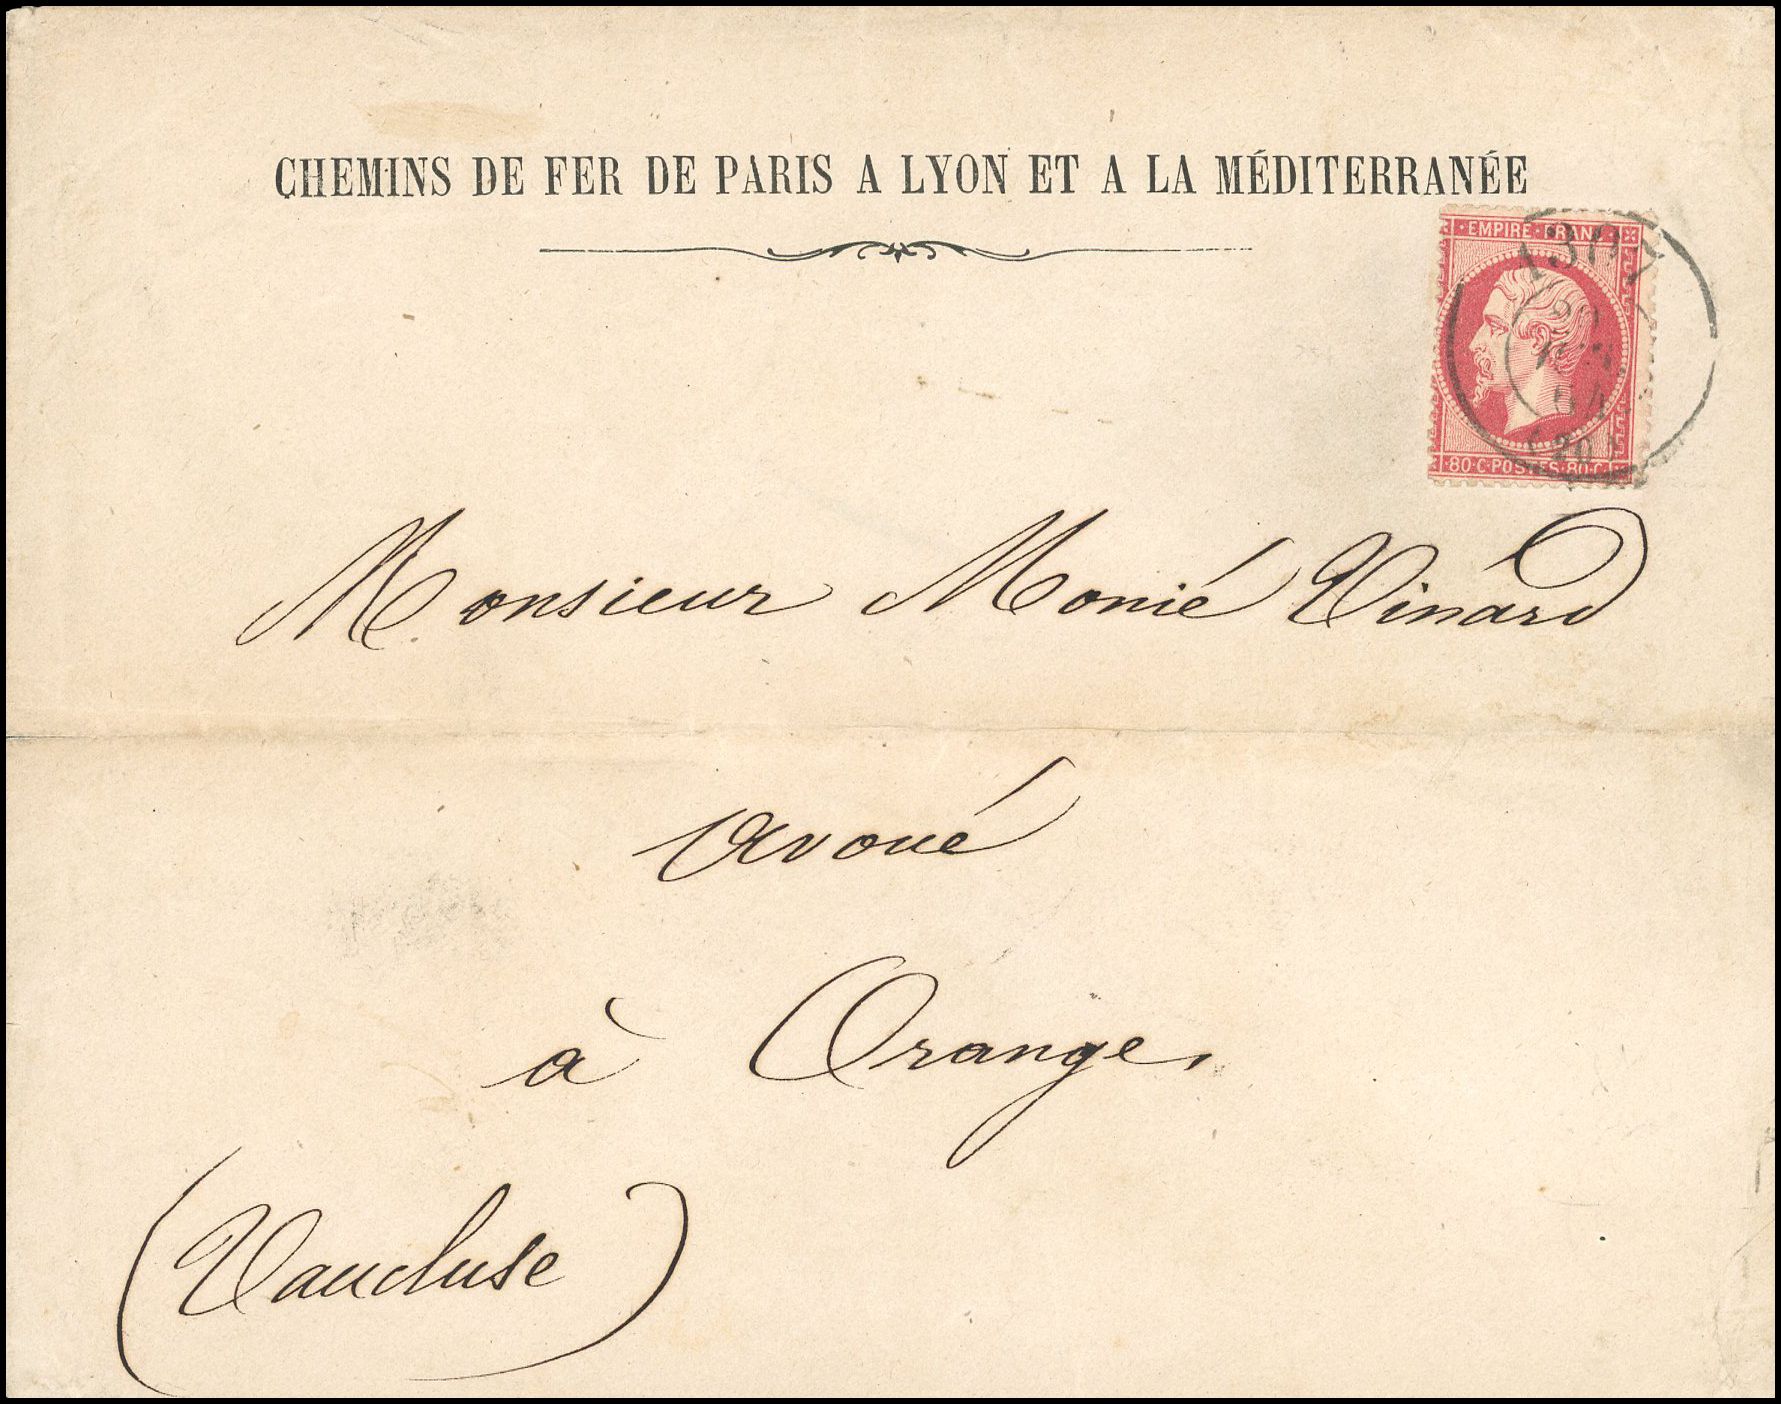 CHEMINS DE FER DE PARIS A LYON ET A LA MÉDITERRANÉE
EMPIRE FRANC
80 C POSTES 80 C
Monsieur Monié Vinard
avoué
à Orange,
(Vaucluse)